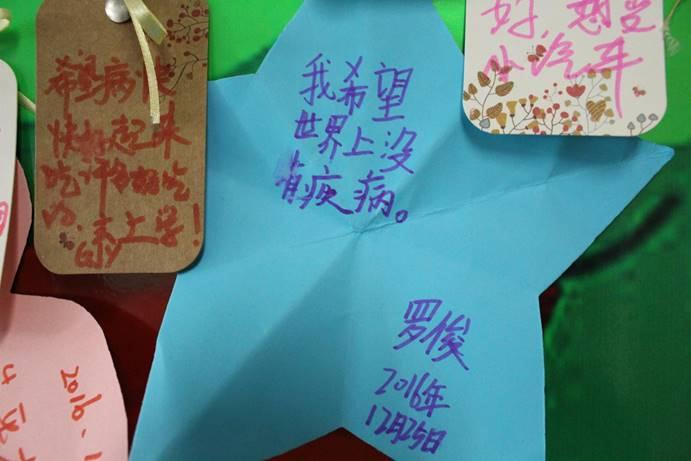 希望病快
快好起来
吃许多好吃
的,去上学!
我希望
世界上没
有疾病。
罗俊
2016年
12月25日
好,想要
小汽车
2016.1